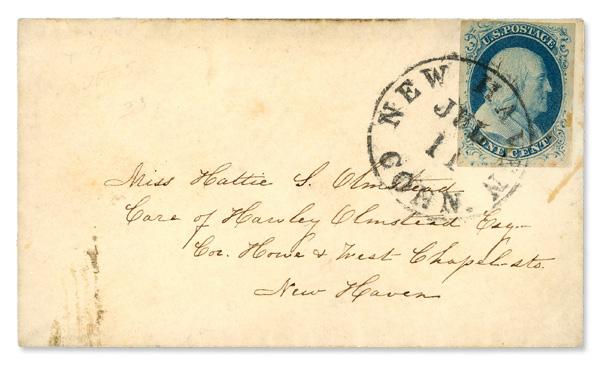 U.S. POSTAGE
ONE CENT.
NEW HAVEN
JUL
11
CONN.
Miss Hattie S. Olmstead
Care of Hawley Olmstead Esqr
Cor. Howe & West Chapel-sts.
New Haven